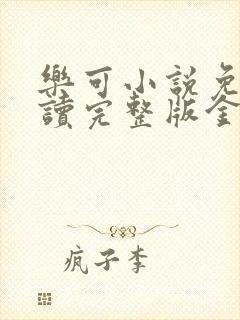 樂可小說免
讀完整版全
疯子李